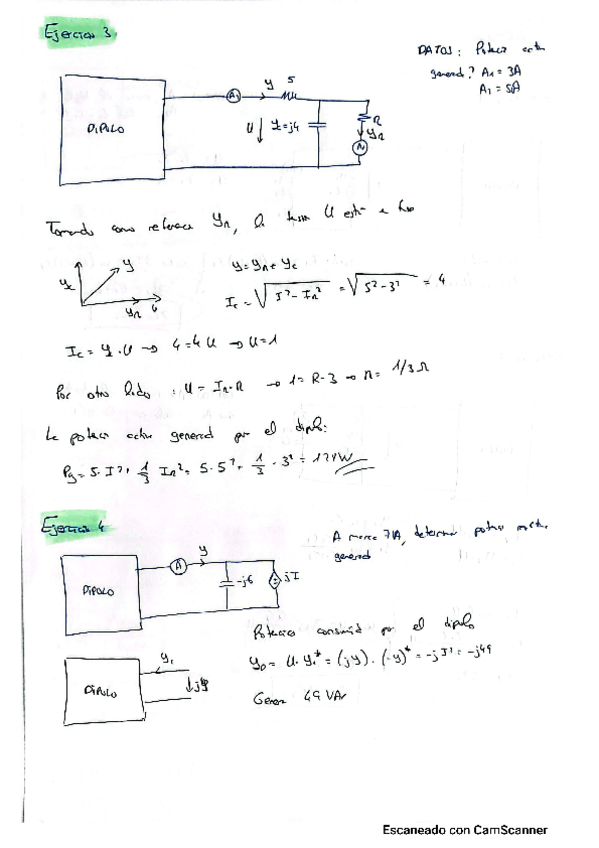 Ejercicio 3
DATOS: Potencia activa
generad? A1 = 3A
A1 = 5A
DIPOLO
A1
5
U
Yc=j4
R
Tomando como referencia
Ic = √I²-In² = √5²-3² = 4
Ic = Yc.U → 4=4U → U=1
Por otro lado : U = In.R → 1 = R.3 → R = 1/3 Ω
La potencia activa generad por el dipolo:
Pg = 5.I² + 1/3 In² = 5.5² + 1/3 . 3² = 128W
Ejercicio 4
A marca 7A, determinar potencia
generad
DIPOLO
A
-j6
jI
Potencia consumid por el dipolo
DIPOLO
= -jI² = -j49
Genera 49 VAr
Escaneado con CamScanner